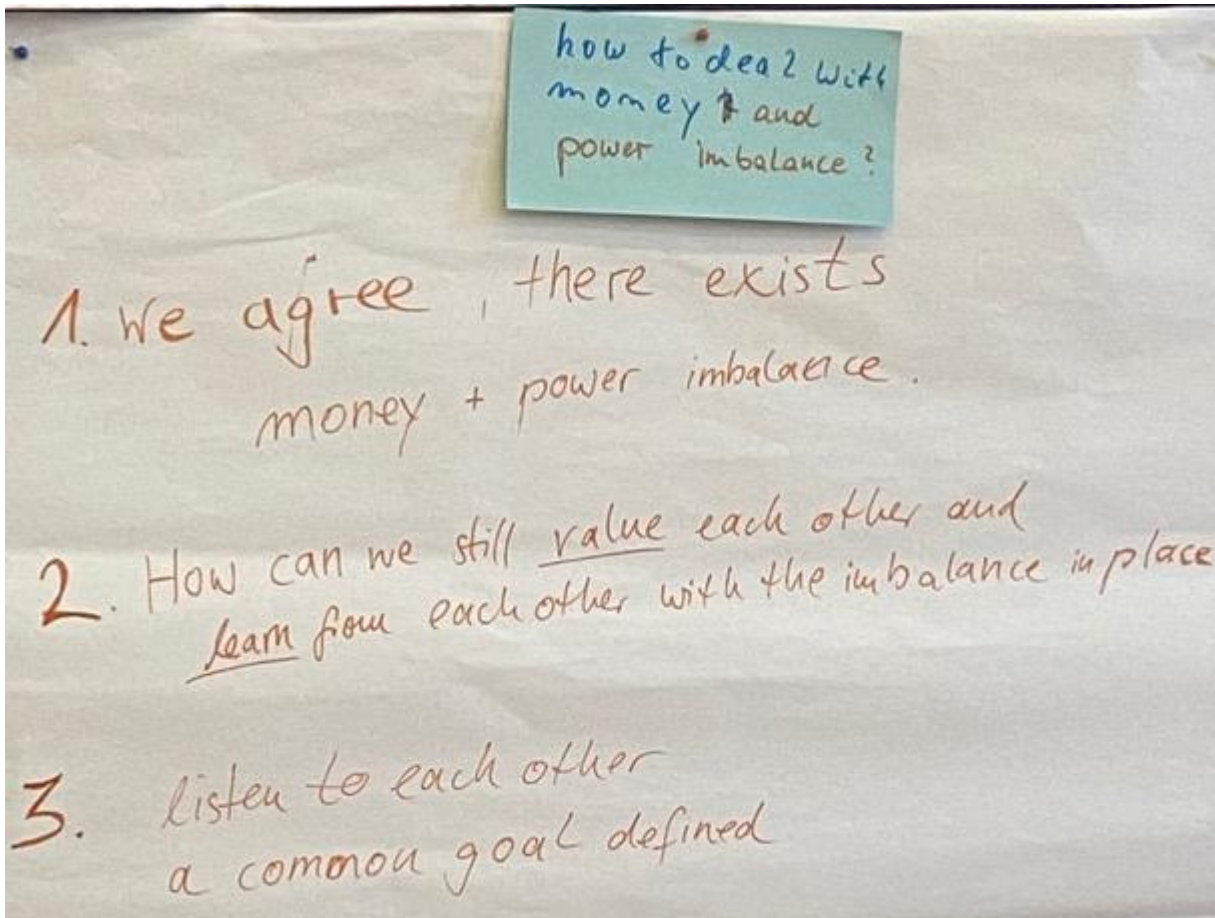 how to deal with
money and
power imbalance?
1. We agree, there exists
money + power imbalance.
2. How can we still value each other and
learn from each other with the imbalance in place
3. listen to each other
a common goal defined